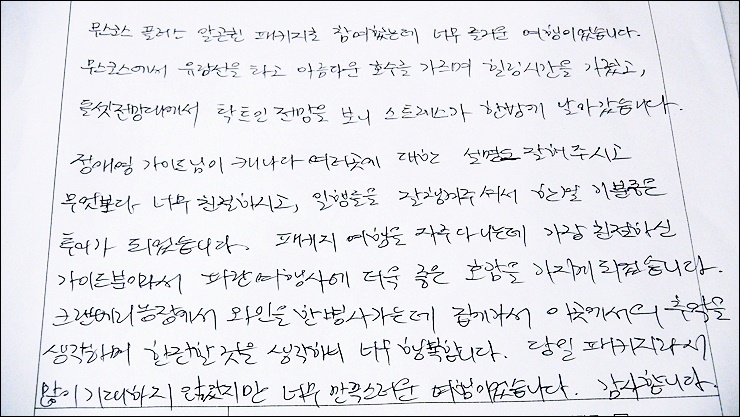 무스코스 플러스 알곤퀸 패키지로 참여했는데 너무 즐거운 여행이었습니다.
무스코스에서 유람선을 타고 아름다운 호수를 가르며 힐링시간을 가졌고,
돌셋전망대에서 탁트인 전망을 보니 스트레스가 한방에 날아갔습니다.
정애영 가이드님이 캐나다 여러곳에 대한 설명도 잘해주시고
무엇보다 너무 친절하시고, 일행들을 잘챙겨주셔서 한결 기분좋은
투어가 되었습니다. 패케지 여행을 자주다니는데 가장 친절하신
가이드분이라서 파란여행사에 더욱 좋은 호감을 가지게되었습니다.
크랜베리농장에서 와인을 한병사가는데 집에가서 이곳에서의 추억을
생각하며 한잔할것을 생각하니 너무 행복합니다. 당일 패키지라서
많이 기대하지 않았지만 너무 만족스러운 여행이었습니다. 감사합니다.